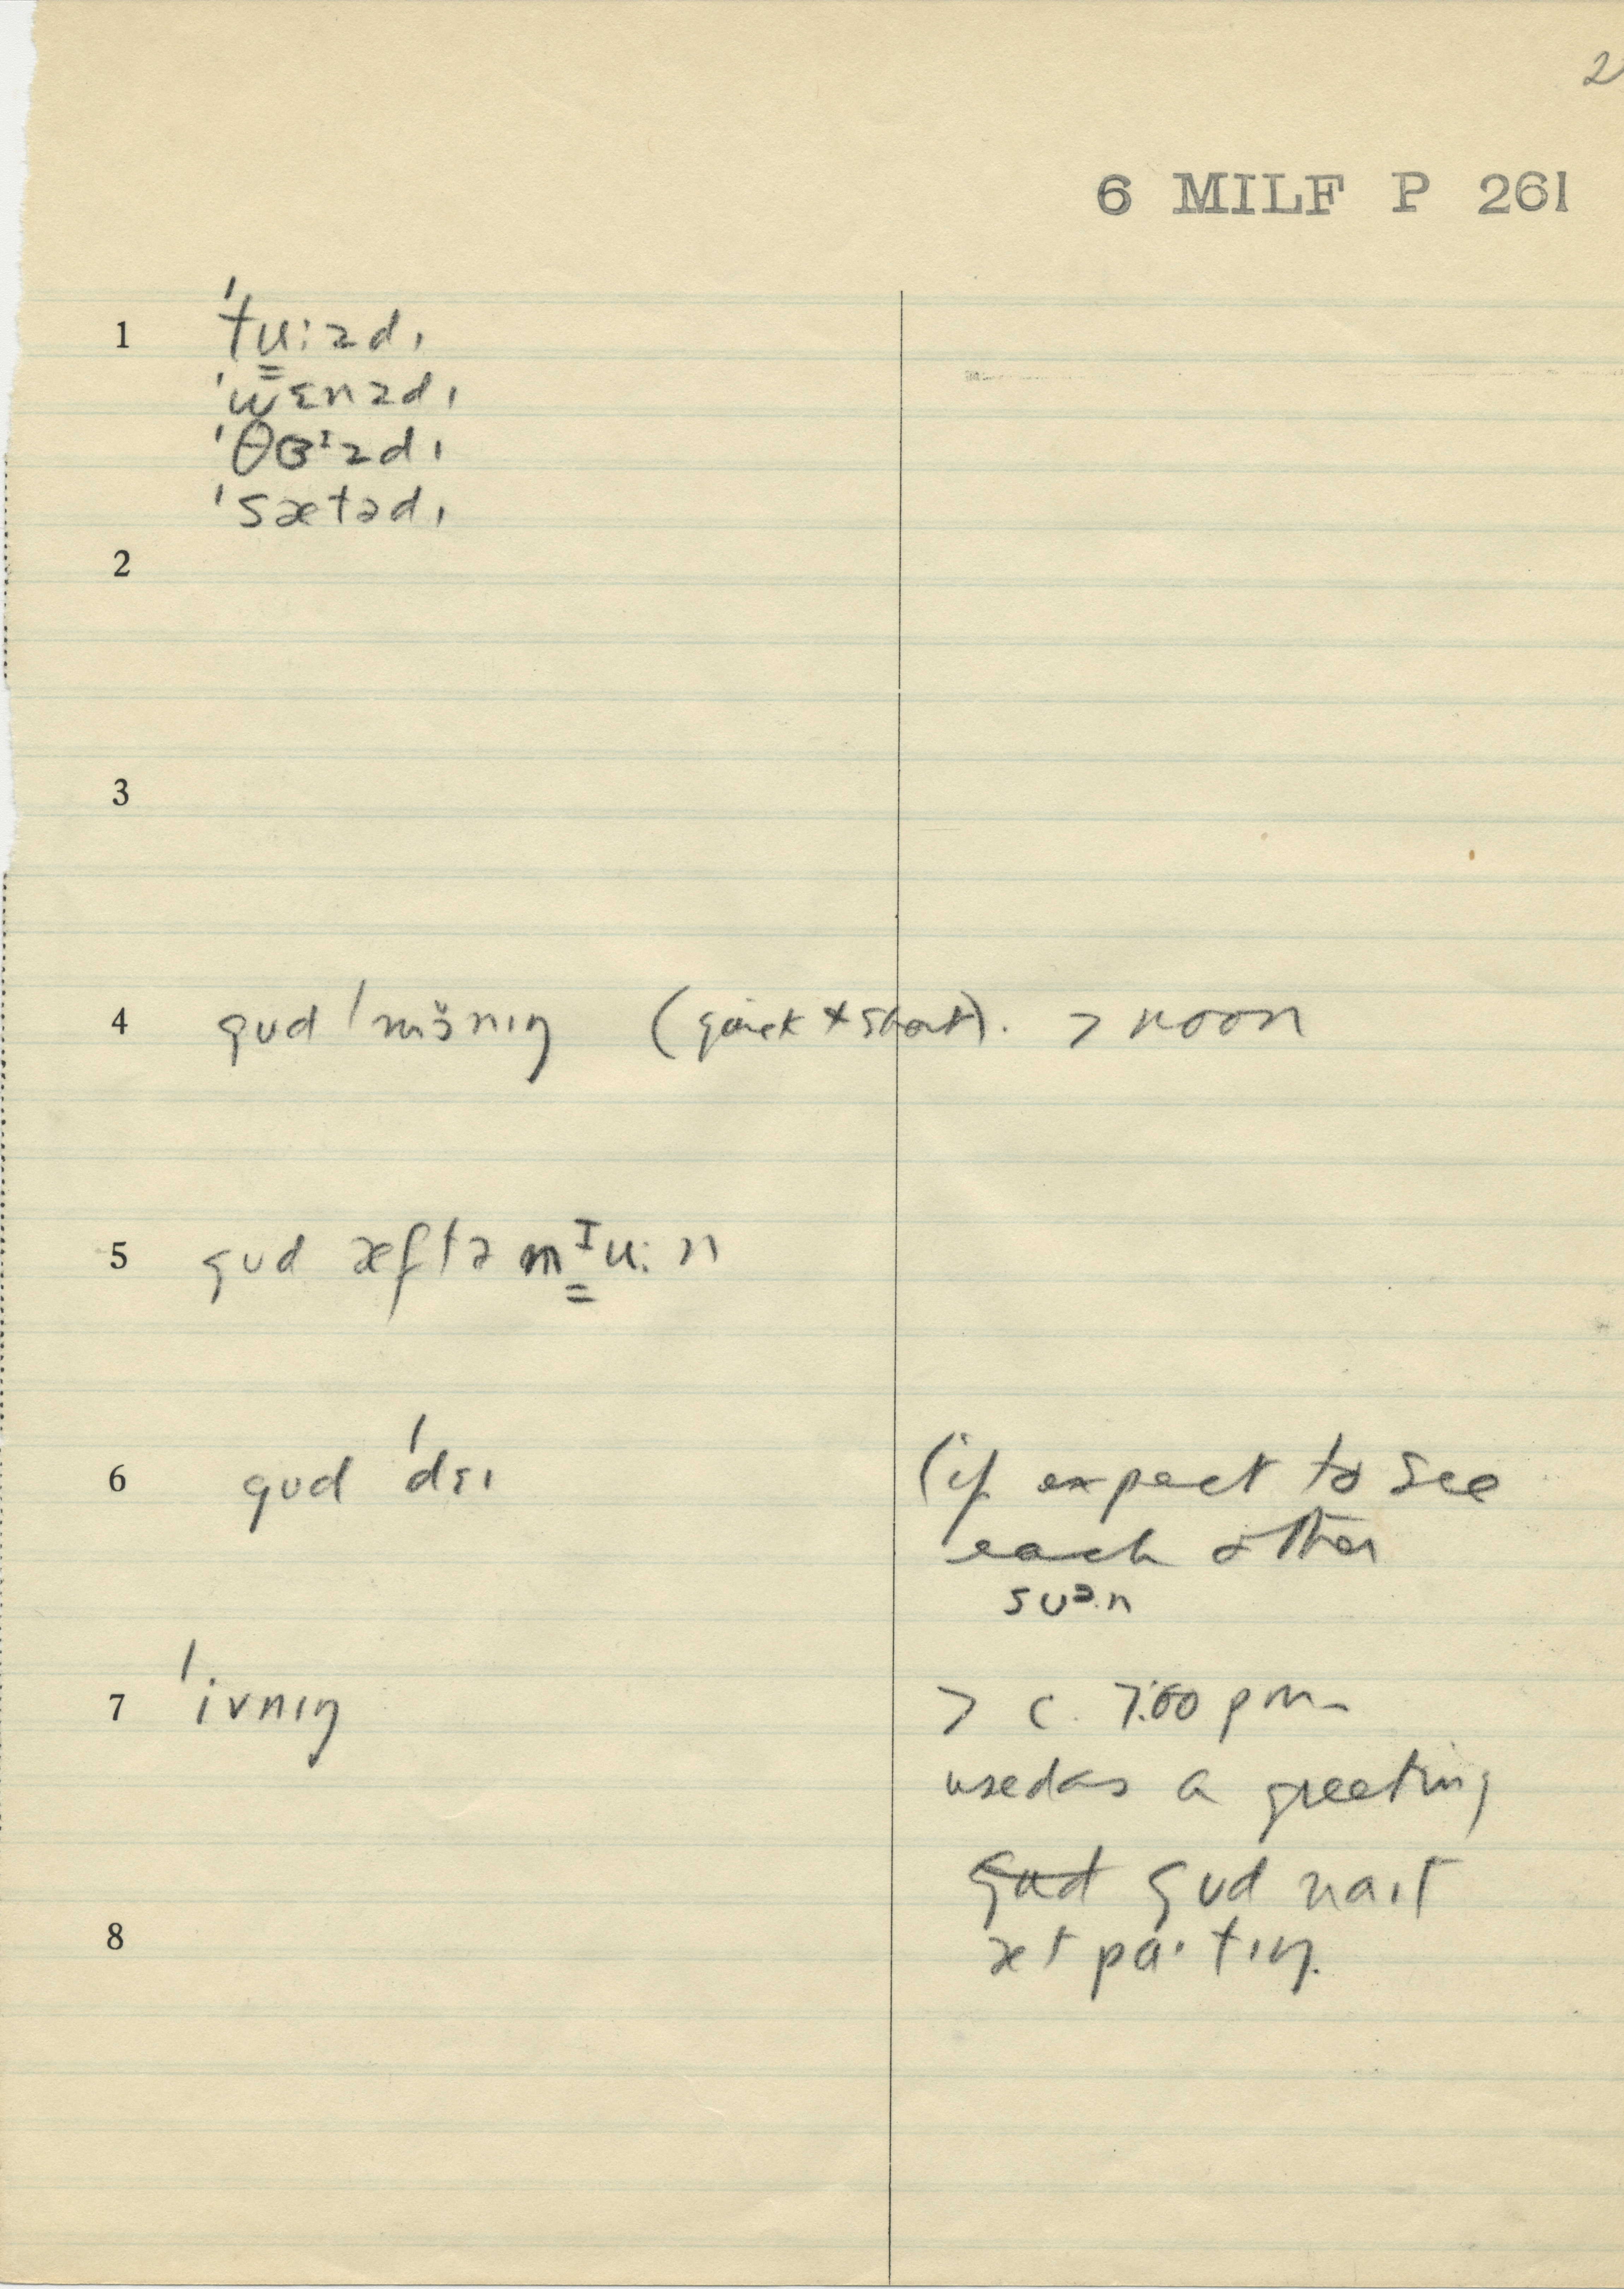 2
6 MILF P 261
1 ˈtu̳:zdɪ
ˈwɛnzdɪ
ˈθɜᶦzdɪ
ˈsætədɪ
2
3
4 gʊd ˈmɔ̆nɪŋ (quick + short). > noon
5 gʊd æftə mᶦ̳u:n
6 gʊd ˈdɛɪ (if expect to see
each other
sʊᵊ.n
7 ˈivnɪŋ > c. 7:00 pm
used as a greeting
gʊd naɪt
8 æt pa·tɪŋ.